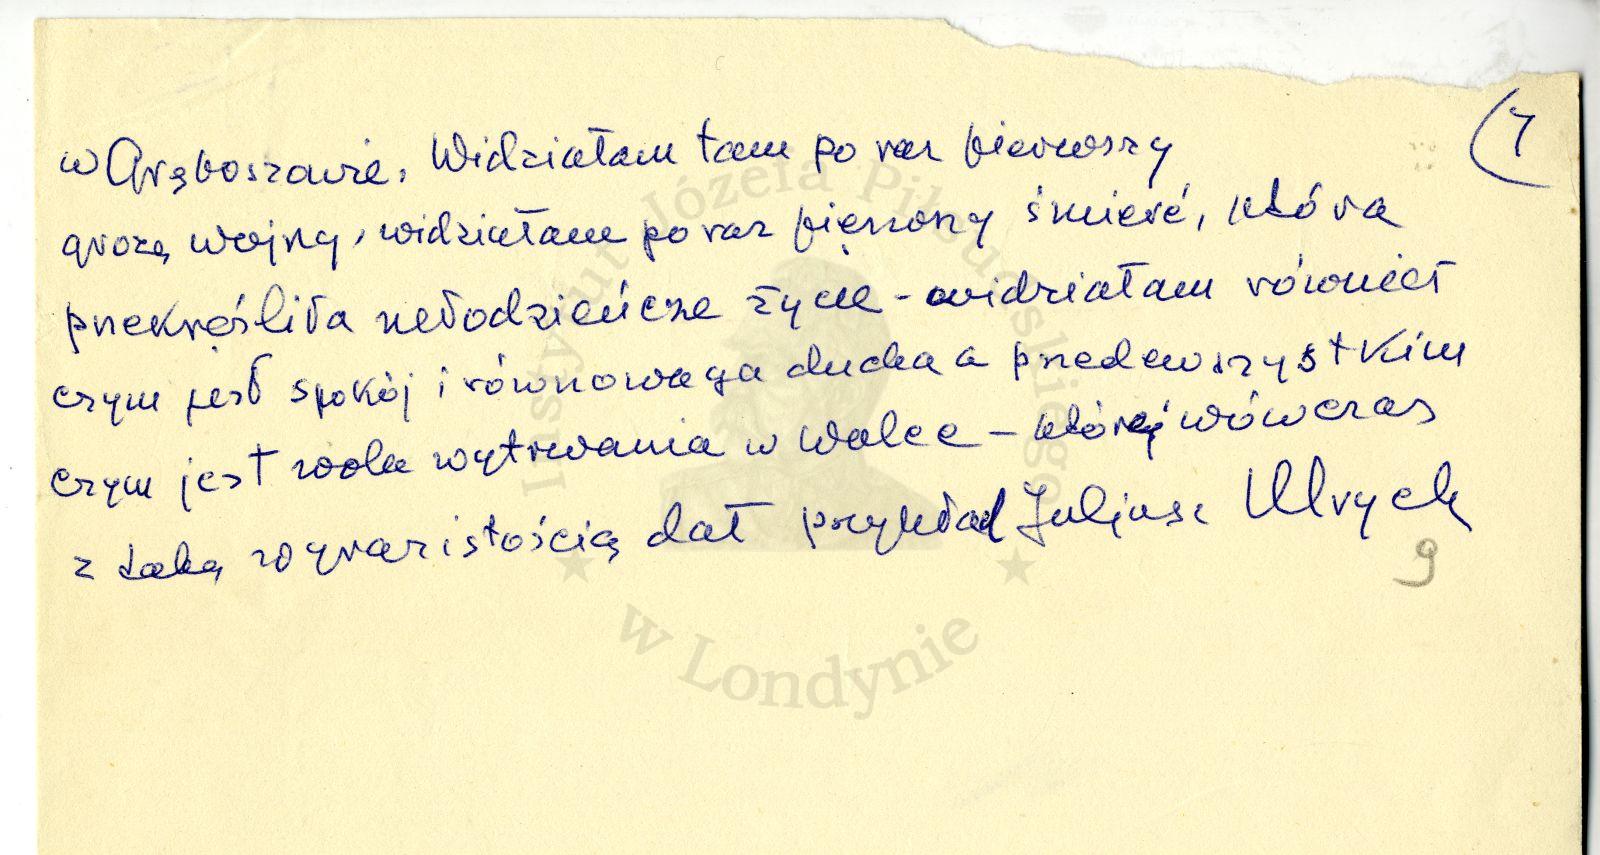 (7
w Gręboszowie. Widziałam tam po raz pierwszy
grozę wojny, widziałam po raz pierwszy śmierć, która
przekreśliła młodzieńcze życie - widziałam również
czym jest spokój i równowaga ducha a przedewszystkim
czym jest wola wytrwania w walce - której wówczas
z taką wyrazistością dał przykład Juljusz Ulrych
9
Instytut Józefa Piłsudskiego
w Londynie